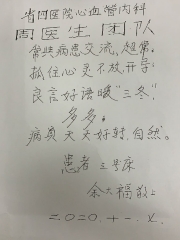 省四医院心血管内科
周医生团队
常与病患交流,超常。
抓住心灵不放,开导
良言好语暖“三冬”
多多。
病员天天好转,自然。
患者 三号床
余大福敬上
二〇二〇.十一.